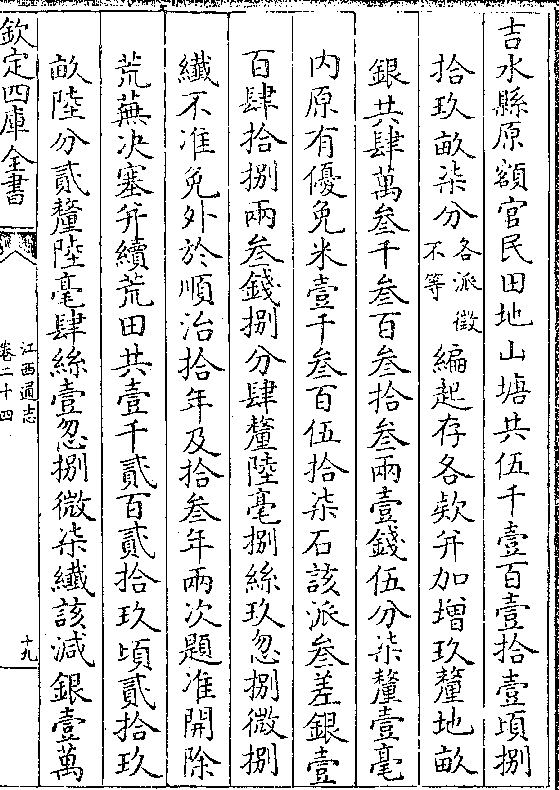 吉水縣原額官民田地山塘共伍千壹百壹拾壹頃捌
拾玖畝柒分各派徵不等編起存各欵并加增玖釐地畝
銀共肆萬叁千叁百叁拾叁兩壹錢伍分柒釐壹毫
内原有優免米壹千叁百伍拾柒石該派叁差銀壹
百肆拾捌兩叁錢捌分肆釐陸毫捌絲玖忽捌微捌
纎不准免外於順治拾年及拾叁年兩次題准開除
荒蕪决塞并續荒田共壹千貳百貳拾玖頃貳拾玖
畝陸分貳釐陸毫肆絲壹忽捌微柒纎該減銀壹萬
欽定四庫全書
江西通志
卷二十四
十九